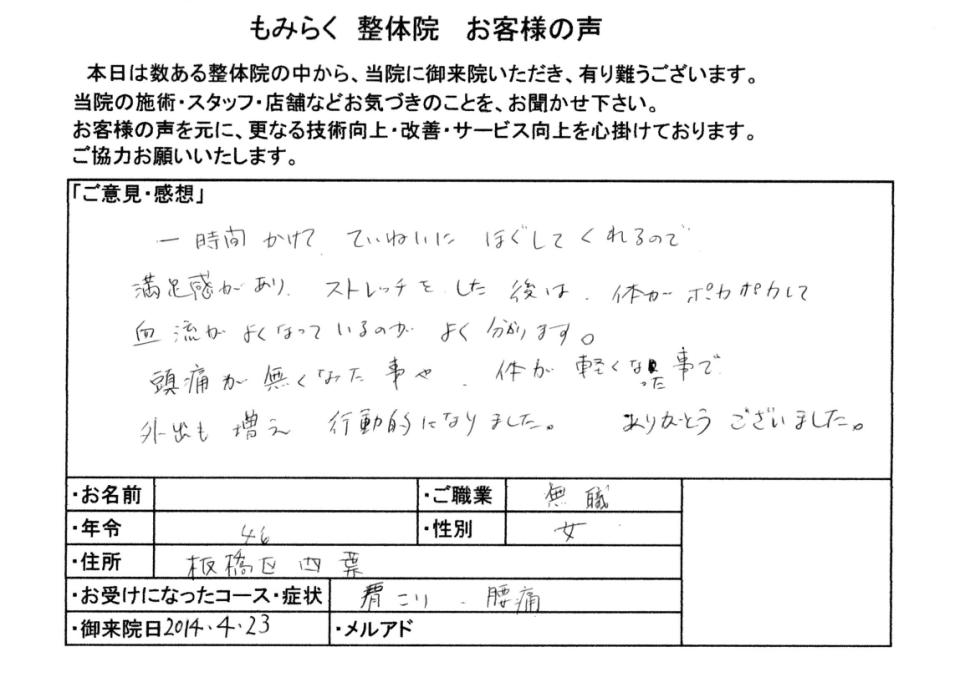 もみらく 整体院 お客様の声
本日は数ある整体院の中から、当院に御来院いただき、有り難うございます。
当院の施術・スタッフ・店舗などお気づきのことを、お聞かせ下さい。
お客様の声を元に、更なる技術向上・改善・サービス向上を心掛けております。
ご協力お願いいたします。
「ご意見・感想」
一時間かけて ていねいに ほぐしてくれるので
満足感があり、ストレッチをした後は、体がポカポカして
血流がよくなっているのが よく分ります。
頭痛が無くなった事や、体が軽くなった事で
外出も増え 行動的になりました。 ありがとうございました。
・お名前 ・ご職業 無職
・年令 46 ・性別 女
・住所 板橋区四葉
・お受けになったコース・症状 肩こり、腰痛
・御来院日 2014.4.23 ・メルアド